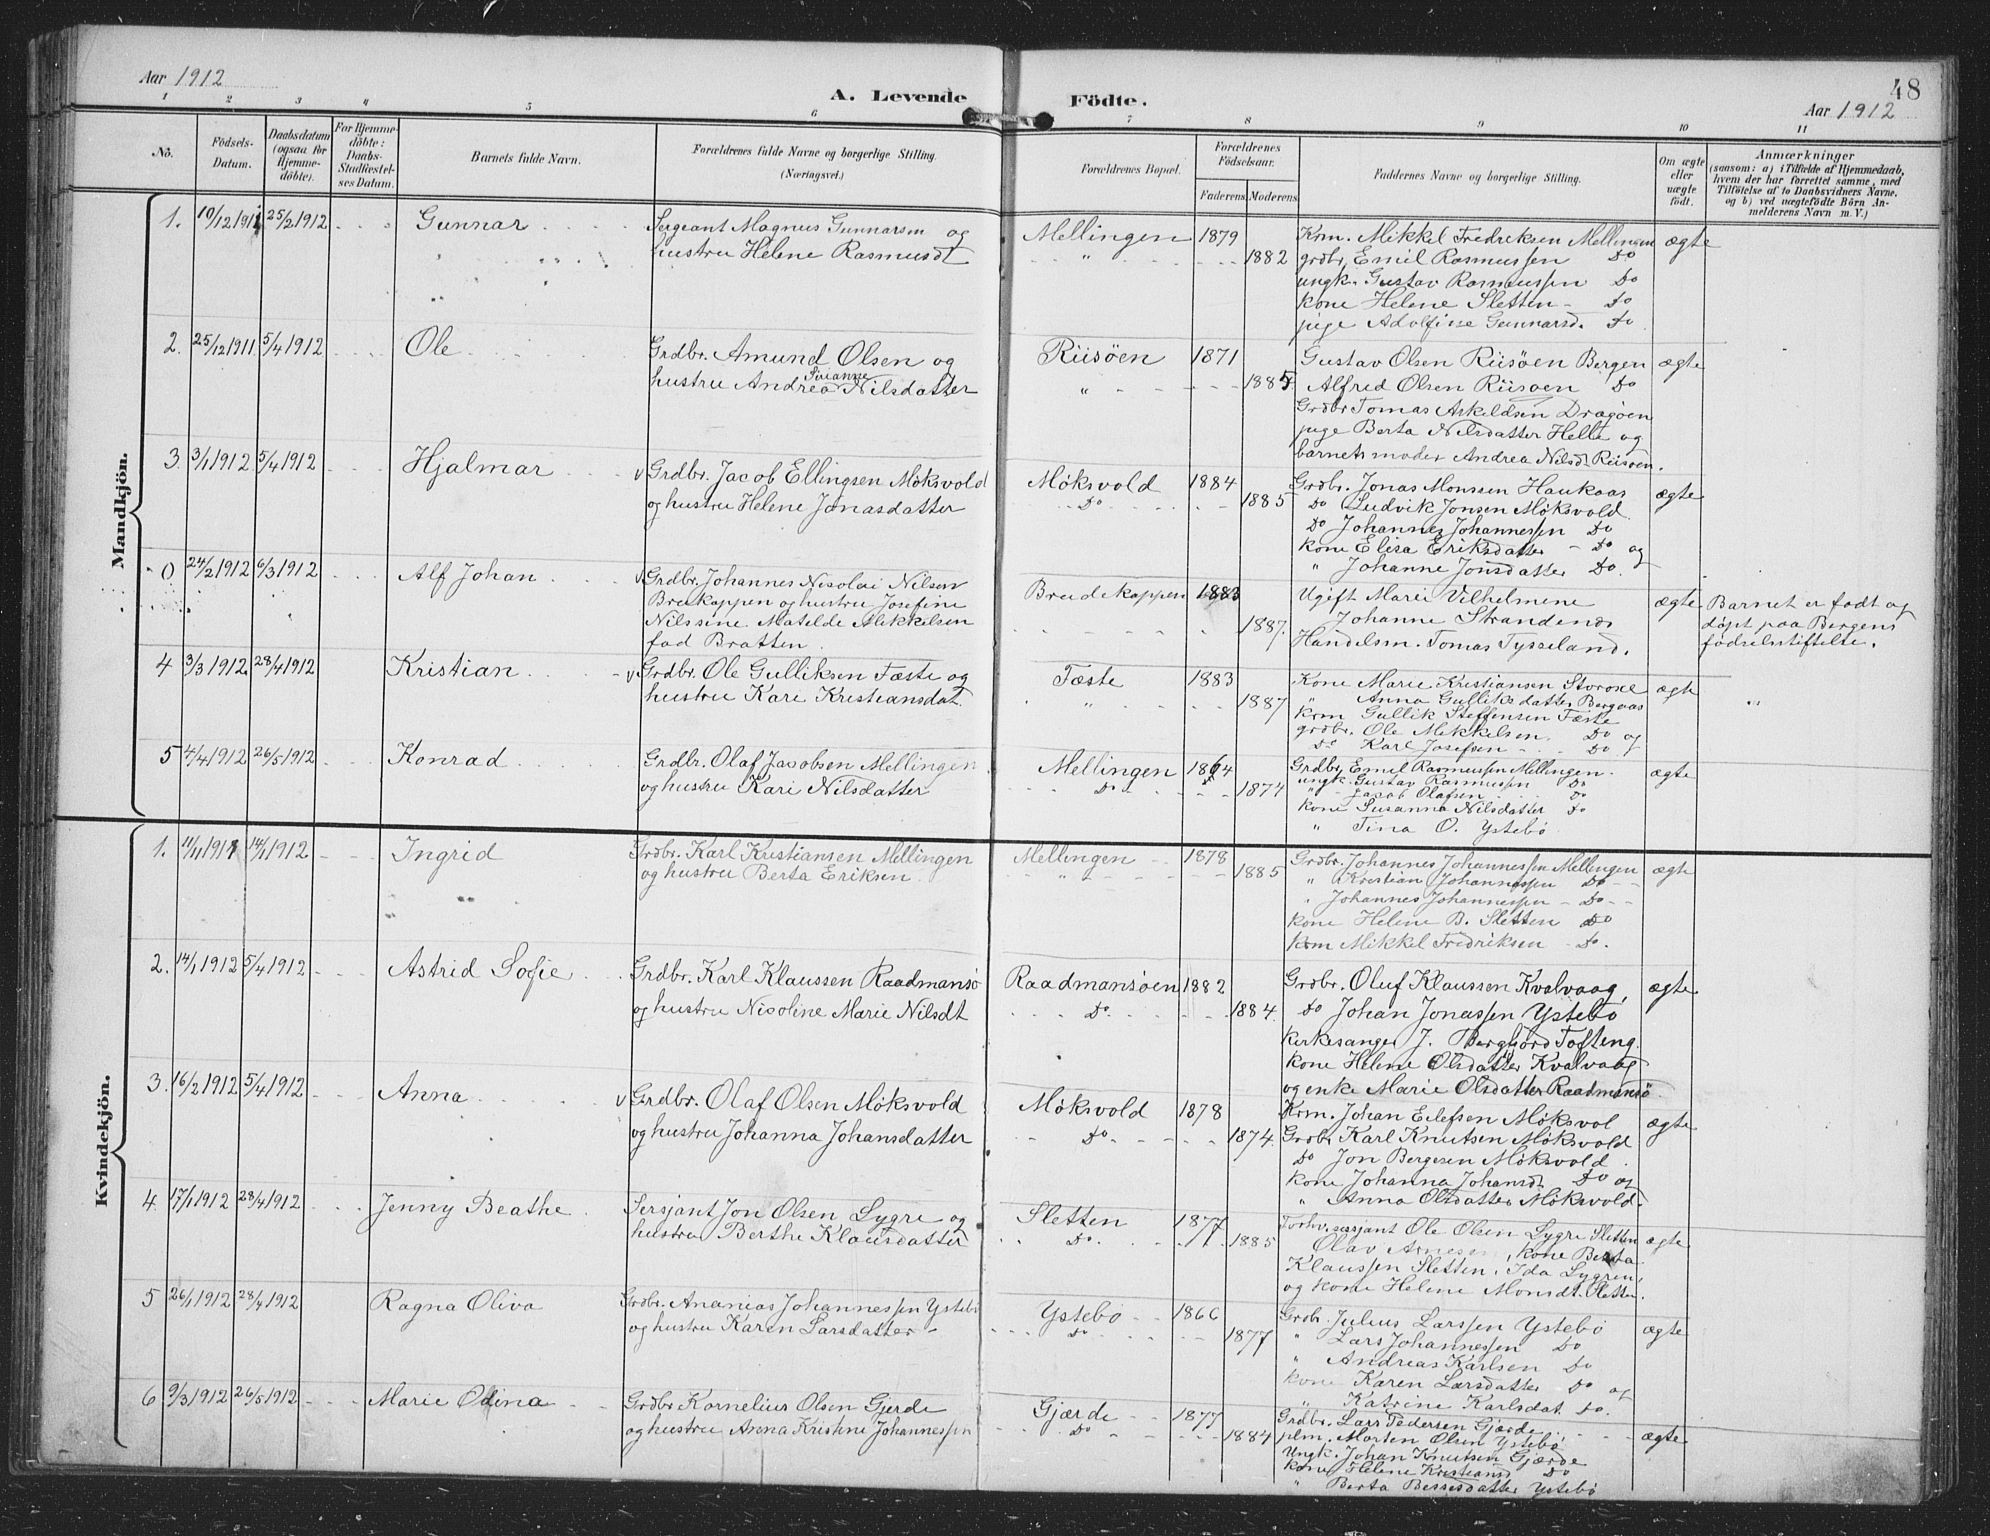 Aar 1912
A. Levende Födte.
48
Aar 1912
1 2 3 4 5 6 7 8 9 10 11
No.
Födsels-
Datum.
Daabsdatum
(ogsaa for
Hjemme-
döbte).
For Hjemme-
döbte:
Daabs-
Stadfæstel-
ses Datum.
Barnets fulde Navn.
Forældrenes fulde Navne og borgerlige Stilling.
(Næringsvei.)
Forældrenes Bopæl.
Forældrenes
Födselsaar.
Faderens.
Moderens.
Faddernes Navne og borgerlige Stilling.
Om ægte
eller
uægte
födt.
Anmærkninger
(saasom: a) i Tilfælde af Hjemmedaab,
hvem der har forrettet samme, med
Tilföielse af to Daabsvidners Navne,
og b) ved uægtefödte Börn An-
melderens Navn m. V.)
Mandkjön.
1. 10/12 1911 25/2 1912 Gunnar
Sergeant Magnus Gunnarsen og
hustru Helene Rasmusdt
Mellingen 1879
" 1882
Krm. Mikkel Fredriksen Mellingen ægte
grdbr. Emil Rasmussen Do
ungk. Gustav Rasmussen Do
kone Helene Sletten - do
pige Adolfine Gunnarsd. do
2. 25/12 1911 5/4 1912 Ole
Grdbr. Amund Olsen og
Sirianne
hustru Andrea Nilsdatter
Riisøen 1871
" 1885
Gustav Olsen Riisøen Bergen ægte
Alfred Olsen Riisøen Do
Grdbr Tomas Askeldsen Dragøen
pige Berta Nilsdatter Helle og
barnets moder Andrea Nilsd. Riisøen.
3. 3/1 1912 5/4 1912 Hjalmar
v Grdbr. Jacob Ellingsen Møksvold
og hustru Helene Jonasdatter
Møksvold 1884
Do 1885
Grdbr. Jonas Monssen Haukaas ægte
Do Ludvik Jonsen Møksvold
Do Johannes Johannessen Do
kone Elisa Eriksdatter - Do og
" Johanne Jonsdatter Do.
0 24/2 1912 6/3 1912 Alf Johan
v Grdbr. Johannes Nicolai Nilsen
Brukappen og hustru Josefine
Nilssine Matilde Mikkelsen
fød Bratten.
Brudekappen 1883
1887.
Ugift Marie Vilhelmine ægte
Johanne Strandenes
Handelsm. Tomas Tysseland.
Barnet er født og
døpt paa Bergens
fødselsstiftelse.
4 3/3 1912 28/4 1912 Kristian
v Grdbr. Ole Gulliksen Fæste og
hustru Kari Kristiansdat.
Fæste 1883
" 1887
Kone Marie Kristiansen ægte
" Anna Gulliksdatter Bergaas
krm Gullik Steffensen Fæste
grdbr. Ole Mikkelsen Do og
Do Karl Josefsen - Do
5 4/4 1912 26/5 1912 Konrad
Grdbr. Olaf Jacobsen Mellingen
og hustru Kari Nilsdatter
Mellingen 1864
Do 1874
Grdbr. Emil Rasmussen Mellingen. ægte
ungk. Gustav Rasmussen Do
" Jacob Olafsen Do
kone Susanna Nilsdatter do
" Tina O. Ystebø
Kvindekjön.
1. 11/11 1911 14/1 1912 Ingrid
Grdbr. Karl Kristiansen Mellingen
og hustru Berta Eriksen.
Mellingen 1878
" 1885
Grdbr. Johannes Johannessen Mellingen ægte
" Kristian Johannessen Do
" Johannes Johannessen - Do
kone Helene B. Sletten do
krm Mikkel Fredriksen - do.
2. 14/1 1912 5/4 1912 Astrid Sofie
Grdbr. Karl Klaussen Raadmansø
og hustru Nicoline Marie Nilsdt
Raadmansøen 1882
Do 1884
Grdbr. Oluf Klaussen Kvalvaag, ægte
do Johan Jonassen Ystebø
kirkesanger J. Bergfjord Tofteng
kone Helene Olsdatter Kvalvaag
og enke Marie Olsdatter Raadmansø.
3. 16/2 1912 5/4 1912 Anna
v Grdbr. Olaf Olsen Møksvold
og hustru Johanna Johansdatter
Møksvold 1878
Do 1874
Krm. Johan Eilefsen Møksvol ægte
Grdbr Karl Knutsen Møksvold
Do Jon Bergesen Møksvold
kone Johanna Johansd. Do og
" Anna Olsdatter Møksvold.
4 17/1 1912 28/4 1912 Jenny Beathe
Sersjant Jon Olsen Lygre og
hustru Berthe Klausdatter
Sletten 1877
Do 1885
Forhv. sersjant Ole Olsen Lygre Sletten ægte
Olav Arnesen, kone Berta
Klaussen Sletten, Ida Lygren,
og kone Helene Monsdt. Sletten.
5 26/1 1912 28/4 1912 Ragna Oliva
Grdbr. Ananias Johannessen Ystebø
og hustru Karen Larsdatter -
Ystebø 1866
Do 1877
Grdbr. Julius Larssen Ystebø ægte
" Lars Johannessen Do
" Andreas Karlsen Do
kone Karen Larsdatter Do og
" Katrine Karlsdat. do.
6 9/3 1912 26/5 1912 Marie Odina
Grdbr Kornelius Olsen Gjerde
og hustru Anna Kristine Johannessen
Gjærde 1877
Do 1884
Grdbr. Lars Pedersen Gjerde ægte
plm. Morten Olsen Ystebø
Ungk. Johan Knutsen Gjærde
kone Helene Kristiansd Do
" Berta Bessesdatter Ystebø